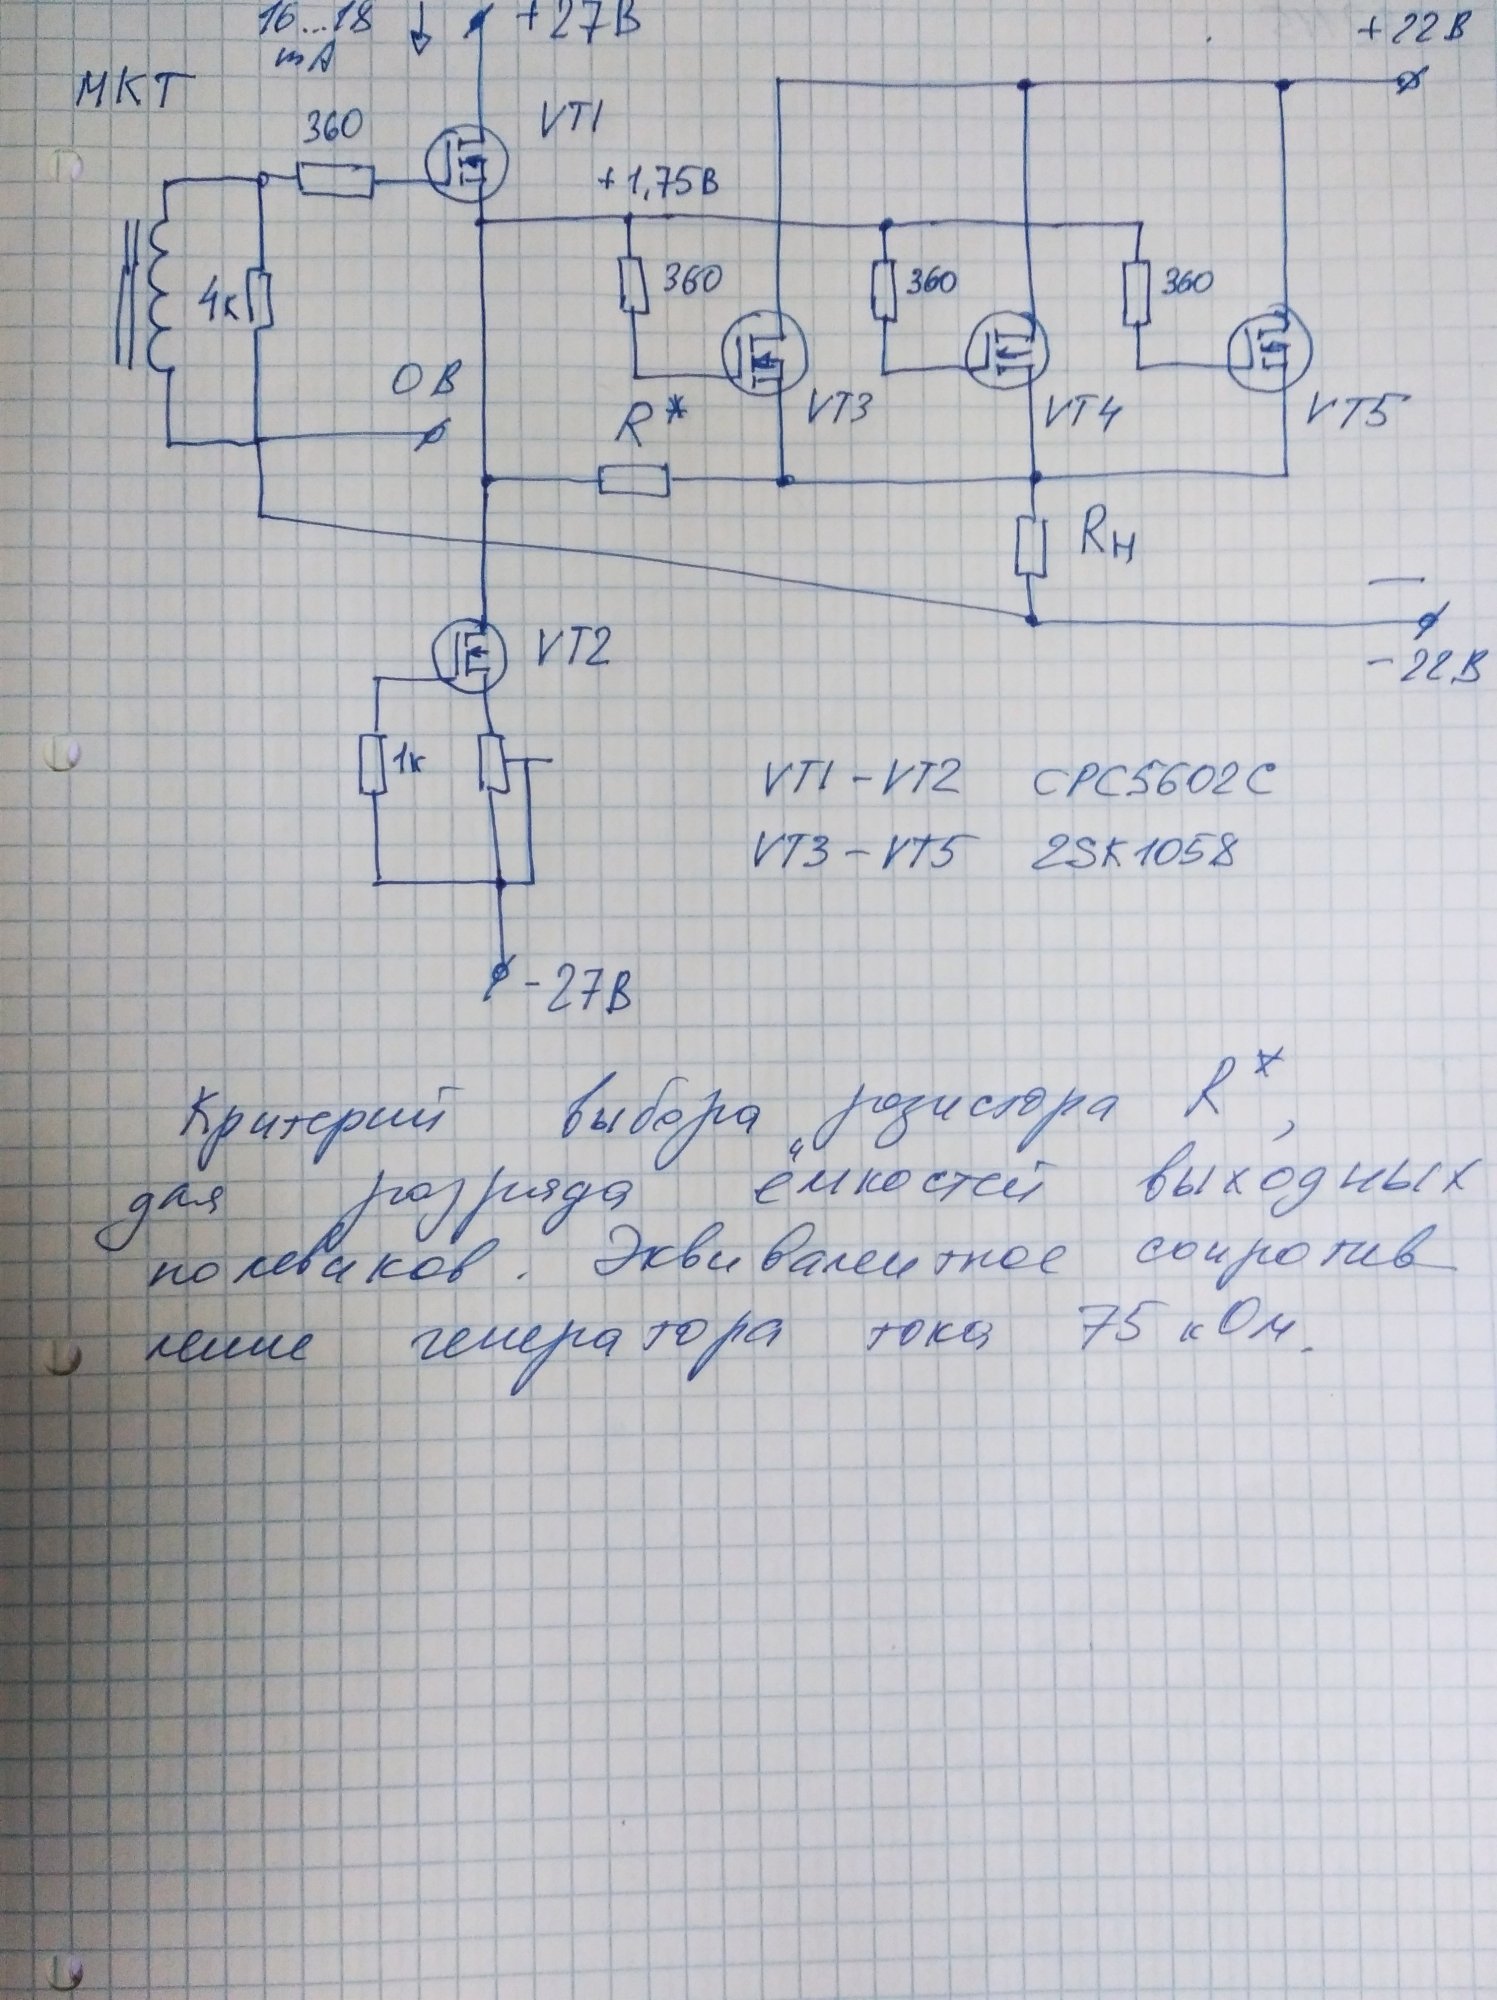 16...18 +27В +22В
mA
МКТ
360 VT1
+1,75В
4к 360 360 360
0В
R* VT3 VT4 VT5
Rн
VT2
-22В
1к
VT1-VT2 CPC5602C
VT3-VT5 2SK1058
-27В
Критерий выбора резистора R*,
для разряда ёмкостей выходных
полевиков. Эквивалентное сопротив
ление генератора тока 75 кОм.